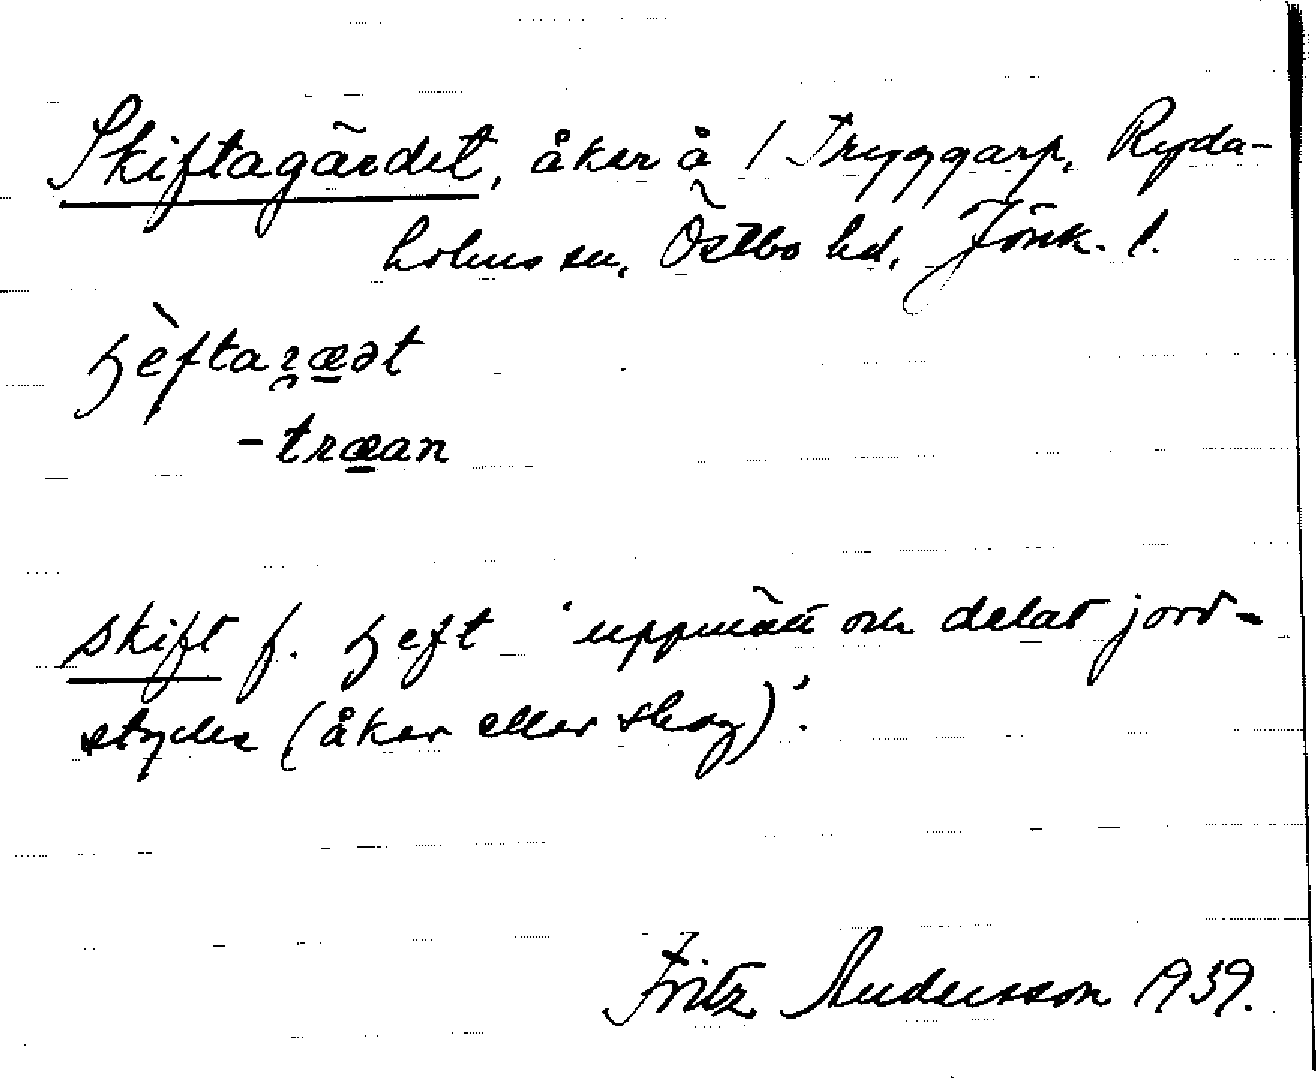 Skiftagärdet, åker å 1 Tryggarp, Ryda-
holms sn, Östbo hd, Jönk. l.
ɧèftaræ̱ət
- træ̱an
skift f. ɧeft 'uppmätt och delat jord-
stycke (åker eller skog)'.
Fritz Andersson 1939.